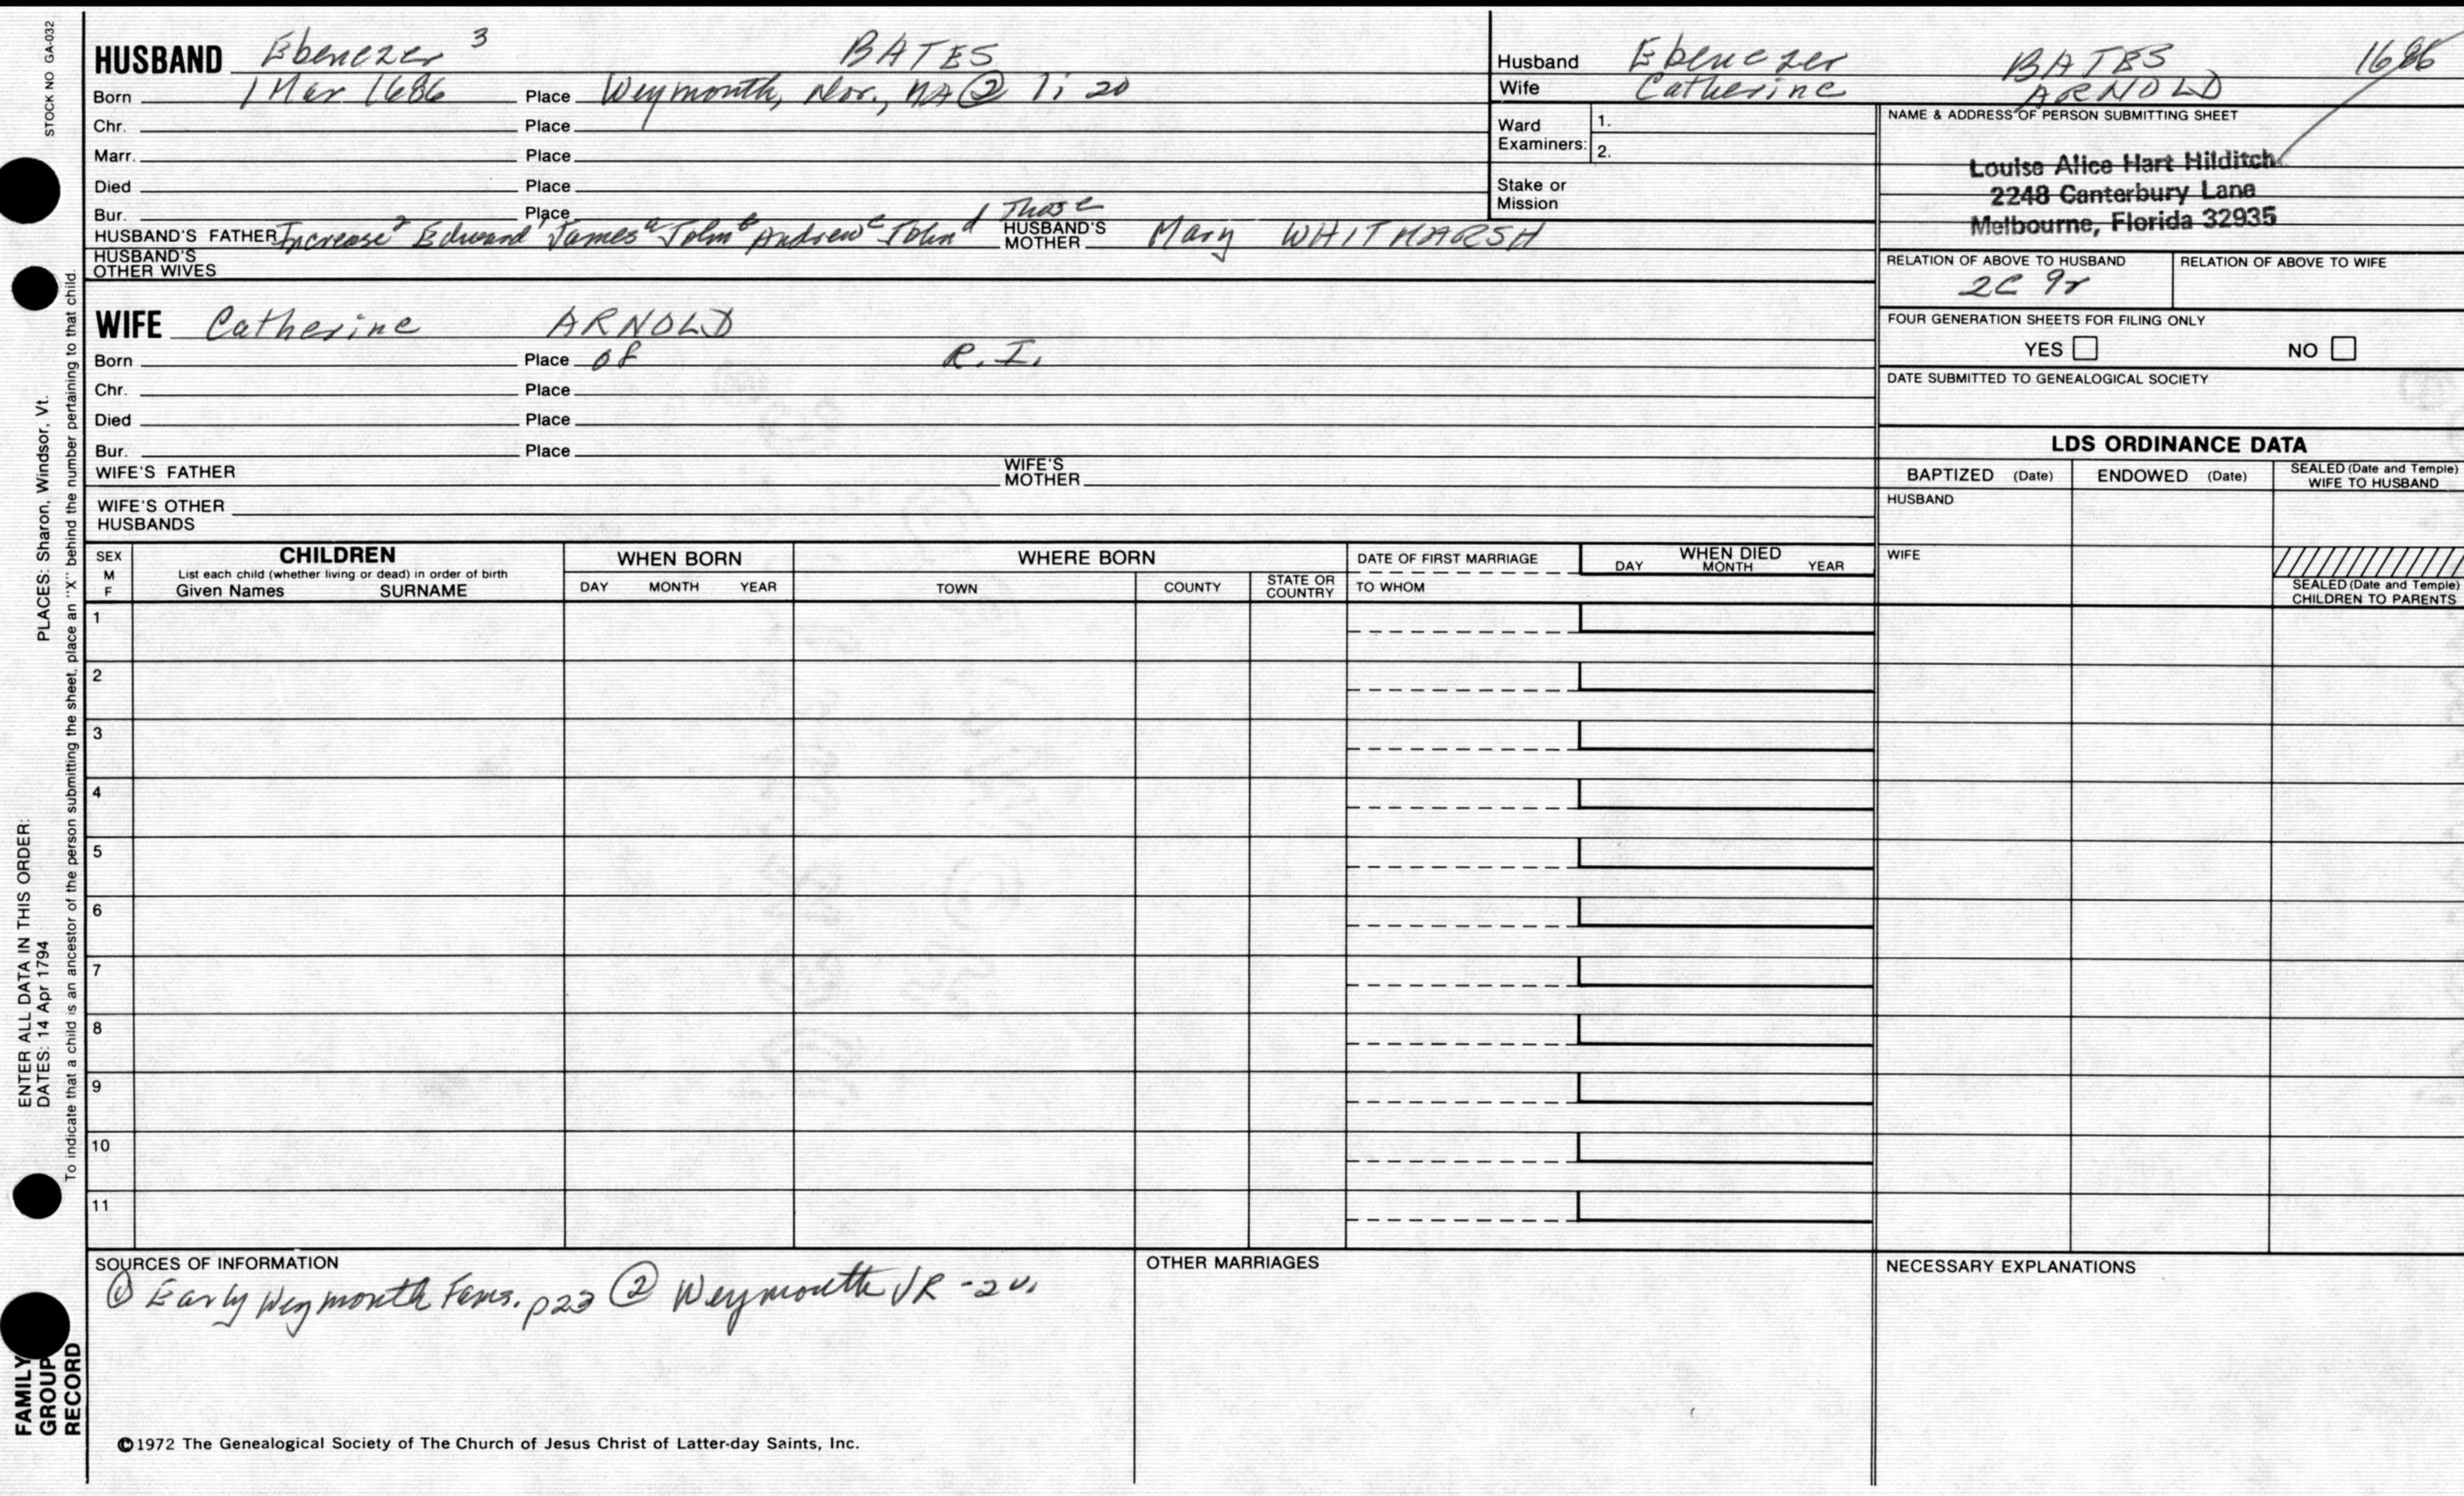 STOCK NO GA-032
HUSBAND Ebenezer 3 BATES
Born 1 Mar 1686 Place Weymouth, Nor., MA ② 1: 20
Chr. Place
Marr. Place
Died Place
Bur. Place
HUSBAND'S FATHER Increase 2 Edward 1 James a John b Andrew c John d Thos e HUSBAND'S MOTHER Mary WHITMARSH
HUSBAND'S OTHER WIVES
Husband Ebenezer BATES 1686
Wife Catherine ARNOLD
Ward Examiners: 1.
2.
Stake or Mission
NAME & ADDRESS OF PERSON SUBMITTING SHEET
Louise Alice Hart Hilditch
2248 Canterbury Lane
Melbourne, Florida 32935
RELATION OF ABOVE TO HUSBAND RELATION OF ABOVE TO WIFE
2C 9r
FOUR GENERATION SHEETS FOR FILING ONLY
YES NO
DATE SUBMITTED TO GENEALOGICAL SOCIETY
WIFE Catherine ARNOLD
Born Place of R.I.
Chr. Place
Died Place
Bur. Place
WIFE'S FATHER WIFE'S MOTHER
WIFE'S OTHER HUSBANDS
LDS ORDINANCE DATA
BAPTIZED (Date) ENDOWED (Date) SEALED (Date and Temple) WIFE TO HUSBAND
HUSBAND
WIFE
SEALED (Date and Temple) CHILDREN TO PARENTS
SEX M F
CHILDREN
List each child (whether living or dead) in order of birth
Given Names SURNAME
WHEN BORN
DAY MONTH YEAR
WHERE BORN
TOWN COUNTY STATE OR COUNTRY
DATE OF FIRST MARRIAGE
TO WHOM
WHEN DIED
DAY MONTH YEAR
1
2
3
4
5
6
7
8
9
10
11
SOURCES OF INFORMATION
① Early Weymouth Fams. p23 ② Weymouth VR - 2v.
OTHER MARRIAGES
NECESSARY EXPLANATIONS
©1972 The Genealogical Society of The Church of Jesus Christ of Latter-day Saints, Inc.
FAMILY GROUP RECORD
ENTER ALL DATA IN THIS ORDER:
DATES: 14 Apr 1794 PLACES: Sharon, Windsor, Vt.
To indicate that a child is an ancestor of the person submitting the sheet, place an "X" behind the number pertaining to that child.